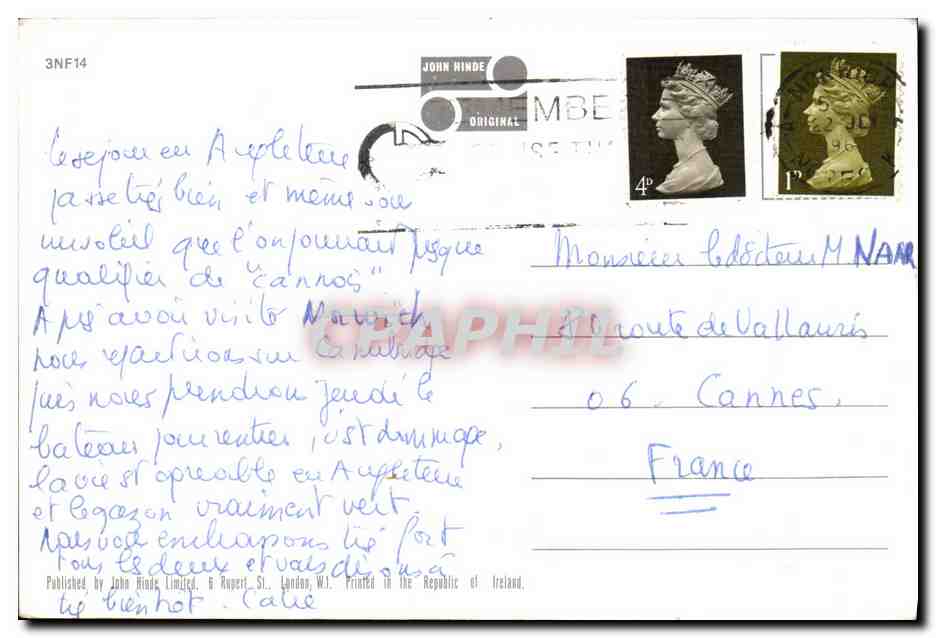 3NF14
JOHN HINDE
ORIGINAL
EMBE
4D
1D
le sejour en Angleterre
passe très bien et même sous
un soleil que l'on pourrait presque
qualifier de "cannois"
Après avoir visité Norwich
nous repartirons sur Cambridge
puis nous prendrons jeudi le
bateau pour rentrer, c'est dommage,
la vie est agréable en Angleterre
et le gazon vraiment vert.
Nous vous embrassons très fort
tous les deux et vous disons à
très bientôt.
Monsieur le docteur M NAAR
route de Vallauris
06 - Cannes.
France
CPAPHIL
Published by John Hinde Limited, 6 Rupert, St., London, W.1. Printed in the Republic of Ireland.